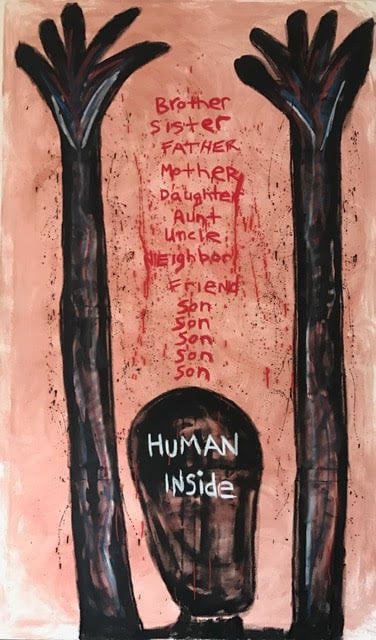 Brother
Sister
FATHER
Mother
Daughter
Aunt
Uncle
NEighbor
FRiEND
Son
Son
Son
Son
Son
HUMAN
INSide